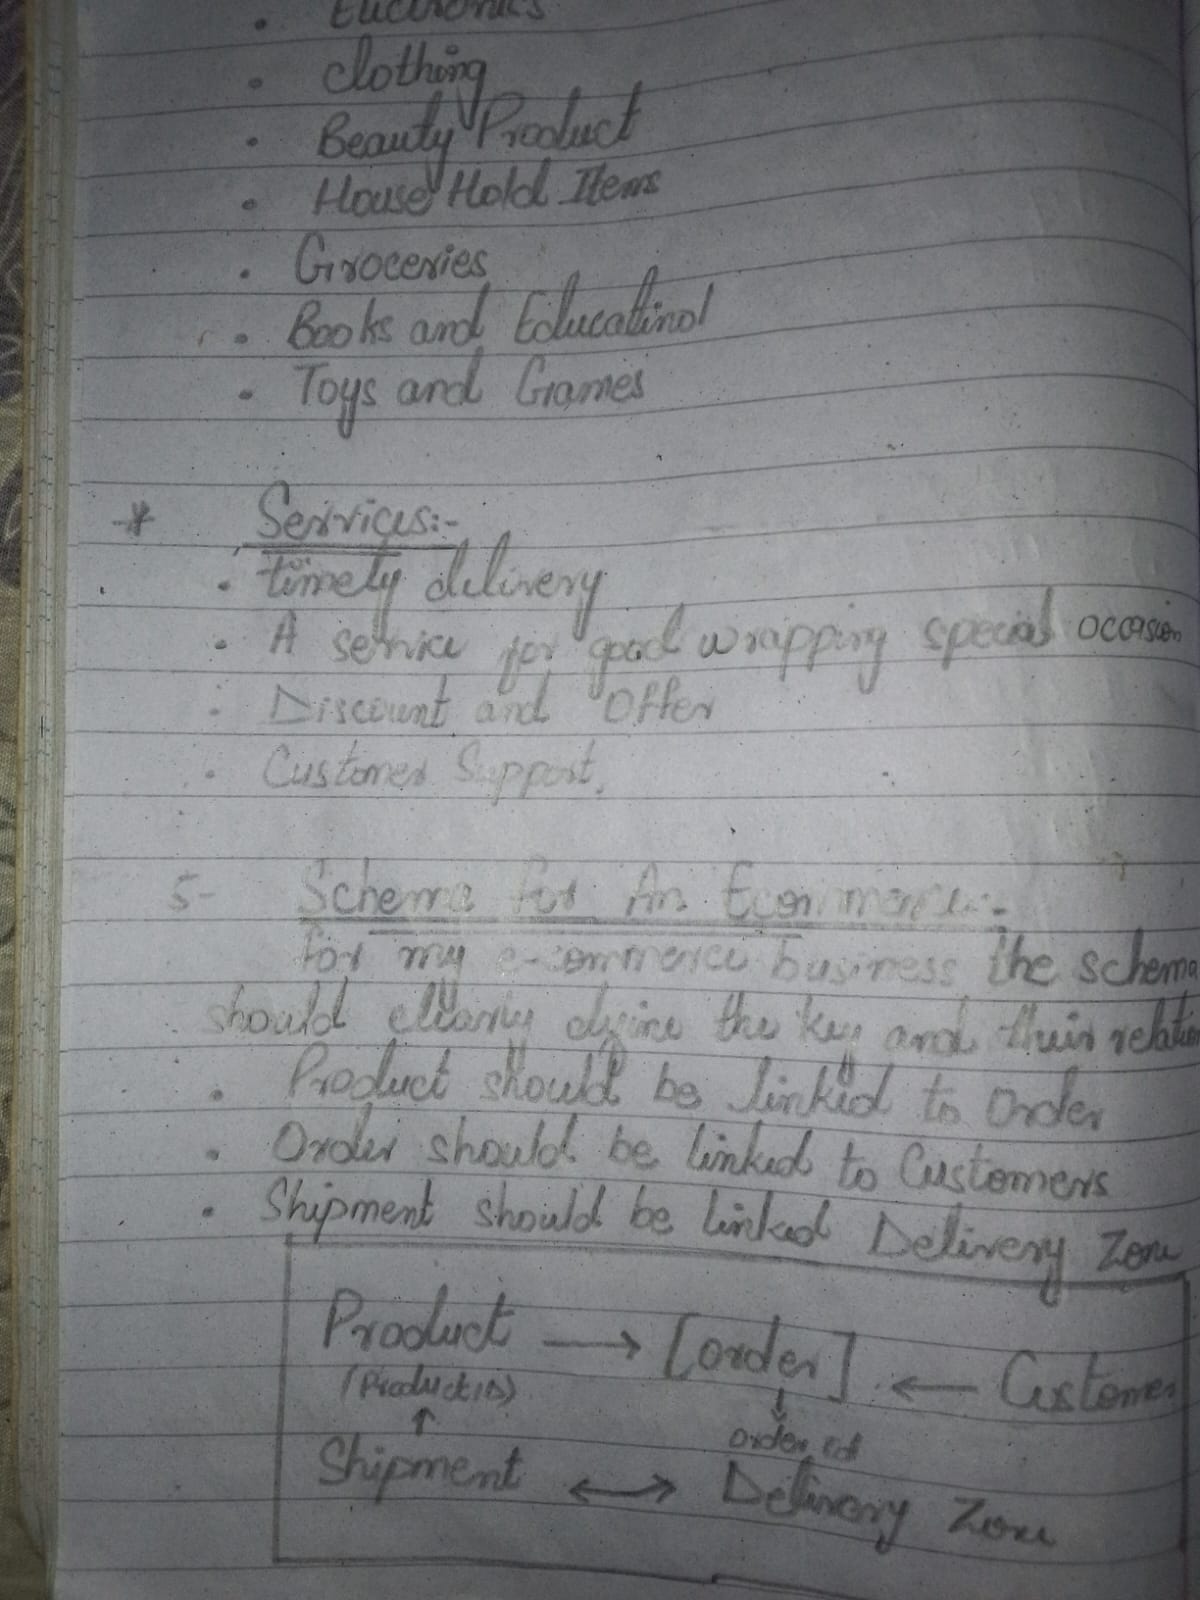 • Electronics
• Clothing
• Beauty Product
• House Hold Items
• Groceries
• Books and Educatinol
• Toys and Games
* Services:-
• timely delivery
• A service for good wrapping special occasion
• Discount and Offer
• Customer Support.
5- Schema for An Ecommerce:-
for my e-commerce business the schema
should clearly define the key and their relation
• Product should be linked to Order
• Order should be linked to Customers
• Shipment should be linked Delivery Zone
Product → [order] ← Customer
(Product ID) ↓
↑ order id
Shipment ↔ Delivery Zone